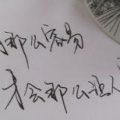 那么容易
才会那么迷人